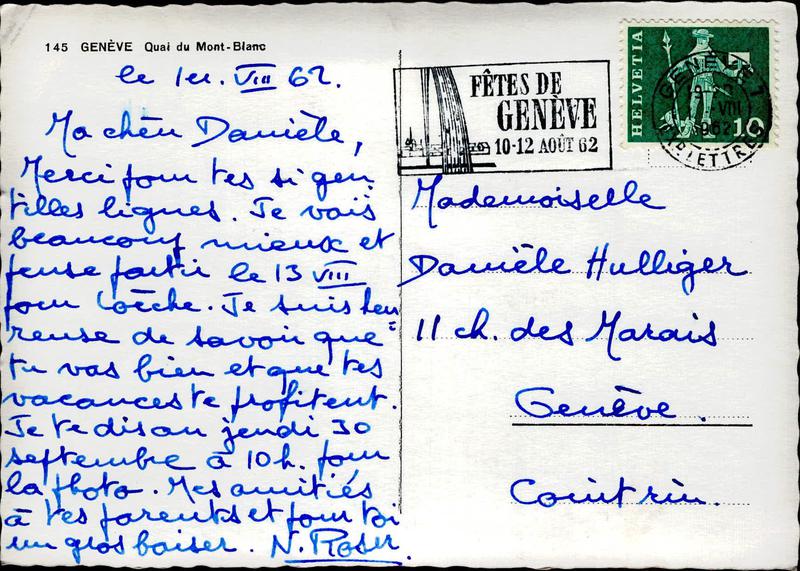 145 GENÈVE Quai du Mont-Blanc
le 1er. VIII 62.
Ma chèn Danièle,
Merci pour tes si gen-
tilles lignes. Je vais
beaucoup mieux et
pense partir le 13 VIII
pour Loèche. Je suis heu=
reuse de savoir que
tu vas bien et que tes
vacances te profitent.
Je te dis au jeudi 30
septembre à 10h. pour
la photo. Mes amitiés
à tes parents et pour toi
un gros baiser. N. Roser
FÊTES DE
GENÈVE
10-12 AOÛT 62
HELVETIA
10
GENÈVE 1
VIII
1962
LETTRES
Mademoiselle
Danièle Hulliger
11 ch. des Marais
Genève.
Cointrin.